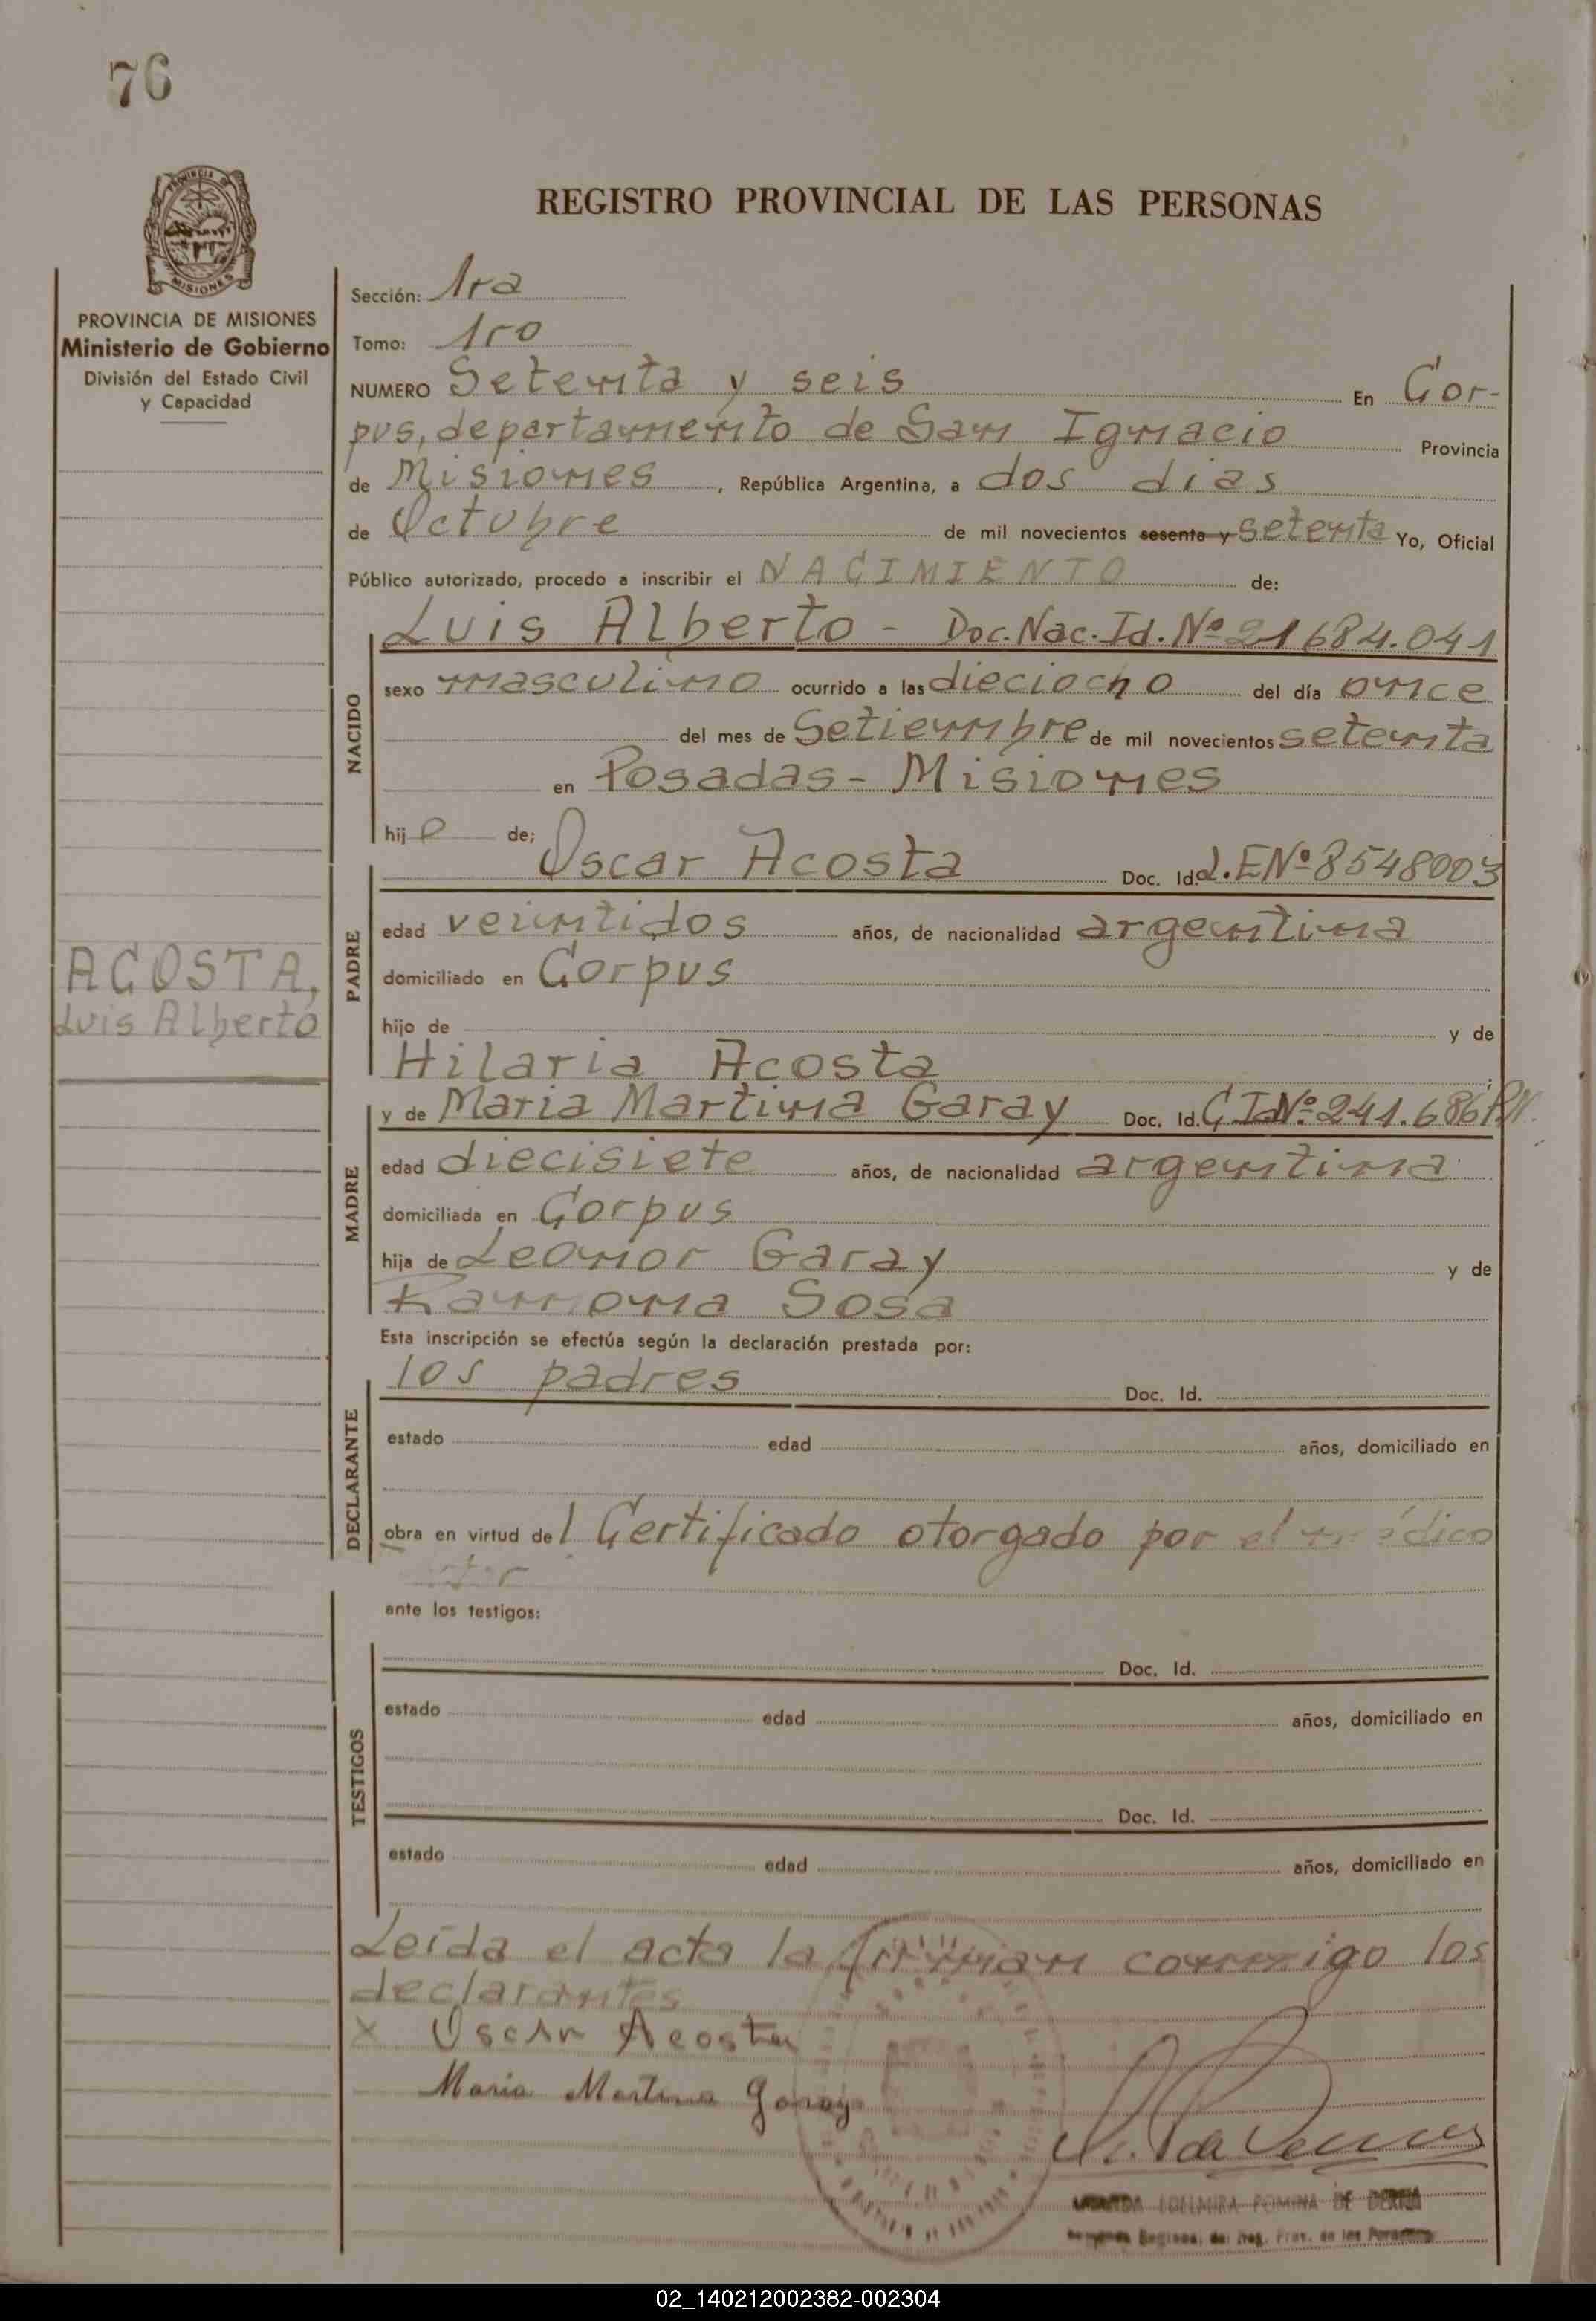 76
PROVINCIA DE
MISIONES
REGISTRO PROVINCIAL DE LAS PERSONAS
PROVINCIA DE MISIONES
Ministerio de Gobierno
División del Estado Civil
y Capacidad
ACOSTA,
Luis Alberto
Sección: 1ra
Tomo: 1ro
NUMERO Setenta y seis En Cor-
pus, departamento de San Ignacio Provincia
de Misiones, República Argentina, a dos dias
de Octubre de mil novecientos sesenta y setenta Yo, Oficial
Público autorizado, procedo a inscribir el NACIMIENTO de:
NACIDO
Luis Alberto - Doc. Nac. Id. Nº 21684.041
sexo masculino ocurrido a las dieciocho del día once
del mes de Setiembre de mil novecientos setenta
en Posadas - Misiones
hijo de;
PADRE
Oscar Acosta Doc. Id. L.E Nº 8548003
edad veintidos años, de nacionalidad argentina
domiciliado en Corpus
hijo de y de
Hilaria Acosta ;
MADRE
y de Maria Martina Garay Doc. Id. C I Nº 241.686
edad diecisiete años, de nacionalidad argentina
domiciliada en Corpus
hija de Leonor Garay y de
Ramona Sosa
Esta inscripción se efectúa según la declaración prestada por:
DECLARANTE
los padres Doc. Id.
estado edad años, domiciliado en
obra en virtud del Certificado otorgado por el médico
ante los testigos:
TESTIGOS
Doc. Id.
estado edad años, domiciliado en
Doc. Id.
estado edad años, domiciliado en
Leída el acta la firman conmigo los
declarantes
X Oscar Acosta
Maria Martina Garay
02_140212002382-002304